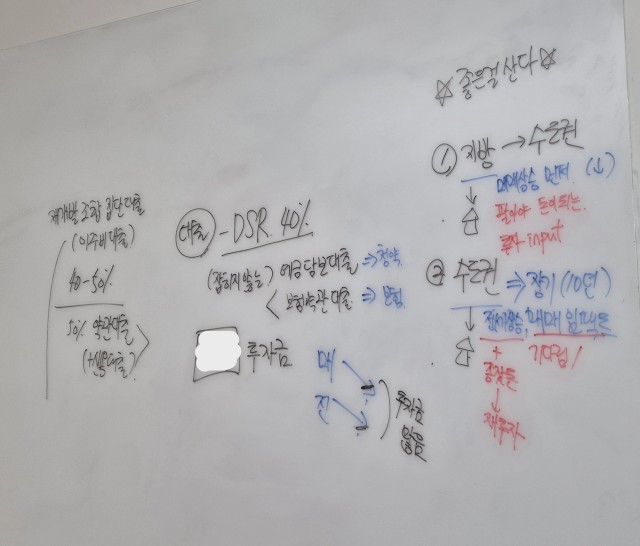 ☆ 좋은걸 산다 ☆
① 지방 → 수도권
매매상승 먼저. (↓)
팔아야 돈이 되는
투자 input
② 수도권 ⇒ 장기 (10년)
전세상승, 매매 임팩트
+ 기다림 /
종잣돈
↓
재투자
재개발 조합 집단대출
(이주비대출)
40-50%
50% 약관대출
(+신용대출)
대출 - DSR. 40%
(잡히지 않는) 예금담보대출 ⇒ 청약
< 보험약관대출. ⇒ 보험.
투자금
매
전
투자금
많음